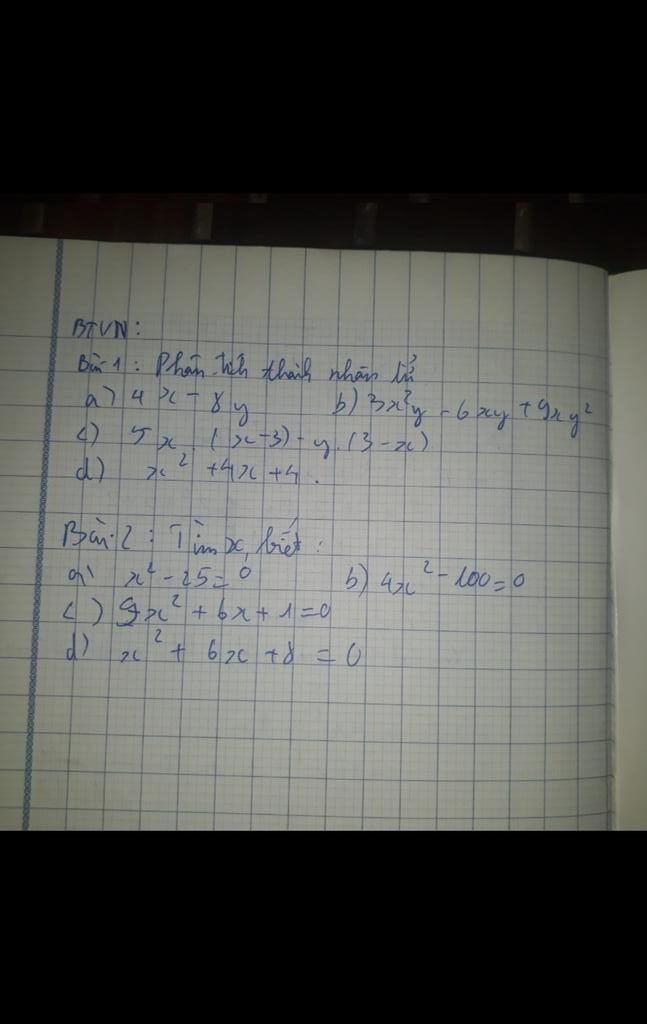 BTVN:
Bài 1: Phân tích thành nhân tử
a) 4x - 8y b) 3x²y - 6xy + 9xy²
c) 5x.(x-3) - y.(3-x)
d) x² + 4x + 4.
Bài 2: Tìm x, biết:
a) x² - 25 = 0 b) 4x² - 100 = 0
c) 9x² + 6x + 1 = 0
d) x² + 6x + 8 = 0